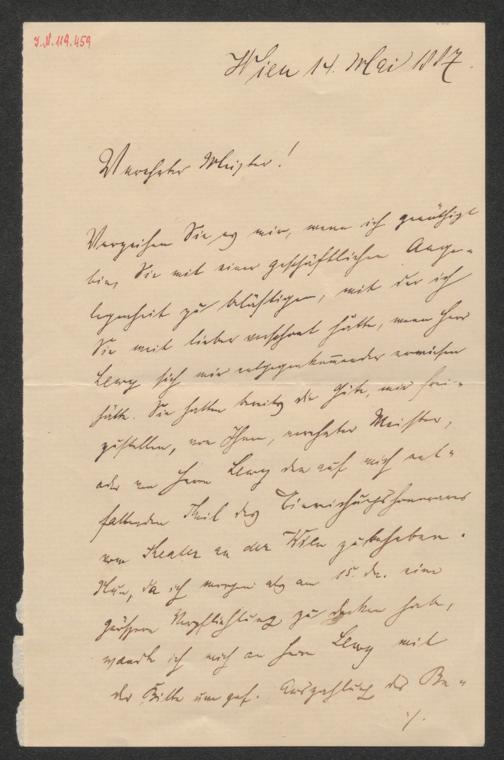 I.N. 119.459
Wien 14. Mai 1887.
Verehrter Meister!
Verzeihen Sie es mir, wenn ich genöthigt
bin, Sie mit einer geschäftlichen Ange-
legenheit zu belästigen, mit der ich
Sie weit lieber verschont hätte, wenn Herr
Lewy sich mir entgegenkommender erwiesen
hätte. Sie hatten bereits die Güte, mir frei-
zustellen, von Ihnen, verehrter Meister,
oder von Herrn Lewy den auf mich ent-
fallenden Theil des Einreichungshonorares
vom Theater an der Wien zu beheben.
Nun, da ich morgen als am 15. ds. eine
größere Verpflichtung zu decken habe,
wandte ich mich an Herrn Lewy mit
der Bitte um gef. Auszahlung des Be-
./.